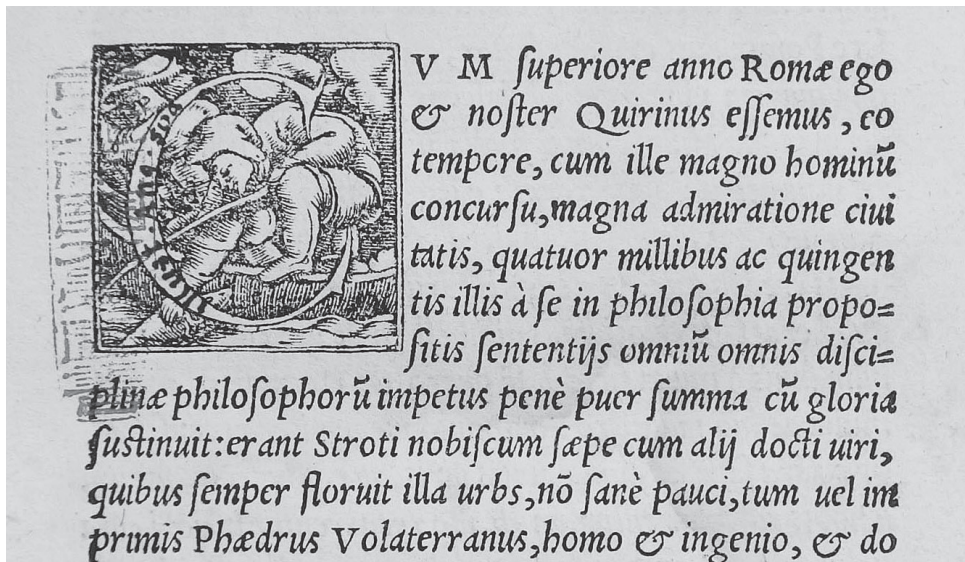 CVM ſuperiore anno Romæ ego
& noſter Quirinus eſſemus, eo
tempore, cum ille magno hominū
concurſu, magna admiratione ciui
tatis, quatuor millibus ac quingen
tis illis à ſe in philoſophia propo=
ſitis ſententijs omniū omnis diſci=
plinæ philoſophorū impetus penè puer ſumma cū gloria
ſuſtinuit: erant Stroti nobiſcum ſæpe cum alij docti uiri,
quibus ſemper floruit illa urbs, nō ſanè pauci, tum uel im
primis Phædrus Volaterranus, homo & ingenio, & do